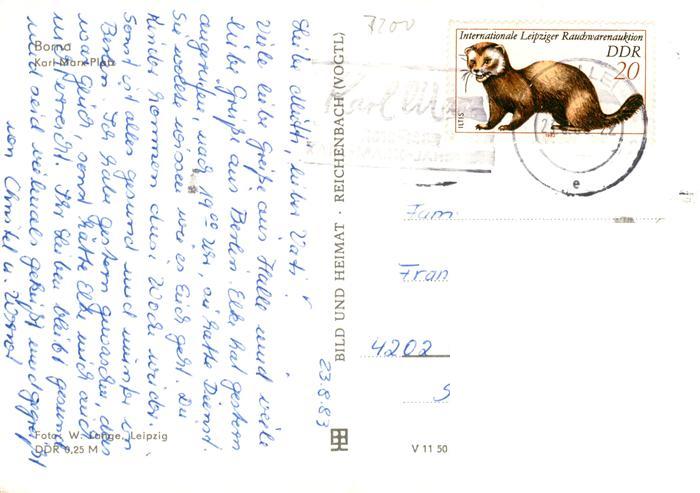 Borna
Karl-Marx-Platz
Liebe Mutti, lieber Vati!
Viele liebe Grüße aus Halle und viele
liebe Grüße aus Berlin. Elke hat gestern
angerufen nach 19⁰⁰ Uhr, sie hatte Dienst.
Sie wollte wissen wie es Euch geht. Die
Kinder kommen diese Woche wieder.
Sonst ist alles gesund und munter in
Berlin. Ich habe gestern gewaschen, das
war gleich, sonst hätte Elke mich auch
nicht erreicht. Ihr Lieben bleibt gesund
und seid vielmals geküßt und gegrüßt
von Christel u. Werner
23.8.83
Foto: W. Lange, Leipzig
DDR 0,25 M
BILD UND HEIMAT · REICHENBACH (VOGTL)
V 11 50
7200
Internationale Leipziger Rauchwarenauktion
DDR
20
ILTIS
Karl Marx
HALLE
e
Fam
Fran
4202
S